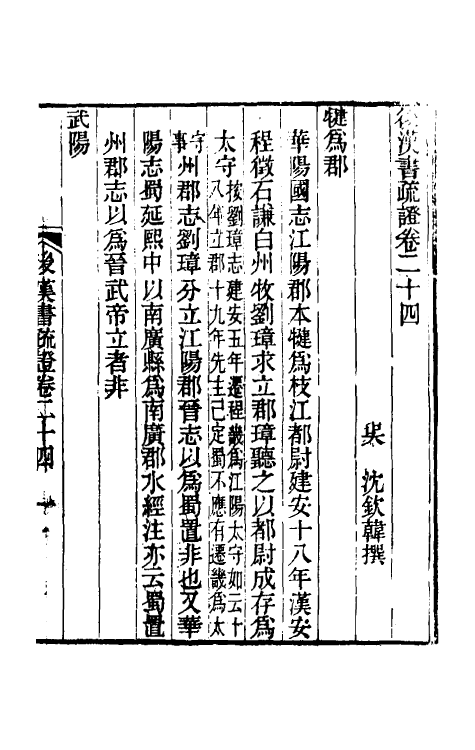 後漢書疏證卷二十四
吳 沈欽韓撰
犍爲郡
華陽國志江陽郡本犍爲枝江都尉建安十八年漢安
程徵石謙白州牧劉璋求立郡璋聽之以都尉成存爲
太守按劉璋志建安五年遷程畿爲江陽太守如云十
八年立郡十九年先主已定蜀不應有遷畿爲太
守事州郡志劉璋分立江陽郡晉志以爲蜀置非也又華
陽志蜀延熙中以南廣縣爲南廣郡水經注亦云蜀置
州郡志以爲晉武帝立者非
武陽
後漢書疏證卷二十四